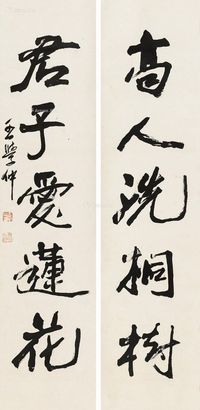 高人洗桐樹
君子愛蓮花
王學仲